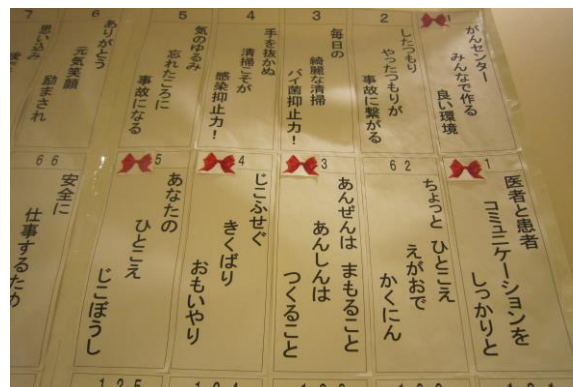 1
がんセンター
みんなで作る
良い環境
2
したつもり
やったつもりが
事故に繋がる
3
毎日の
綺麗な清掃
バイ菌抑止力!
4
手を抜かぬ
清掃こそが
感染抑止力!
5
気のゆるみ
忘れたころに
事故になる
6
ありがとう
元気笑顔
励まされ
7
思い込み
1
医者と患者
コミュニケーションを
しっかりと
62
ちょっと ひとこえ
えがおで
かくにん
3
あんぜんは まもること
あんしんは
つくること
4
じこふせぐ
きくばり
おもいやり
5
あなたの
ひとこえ
じこぼうし
66
安全に
仕事するため